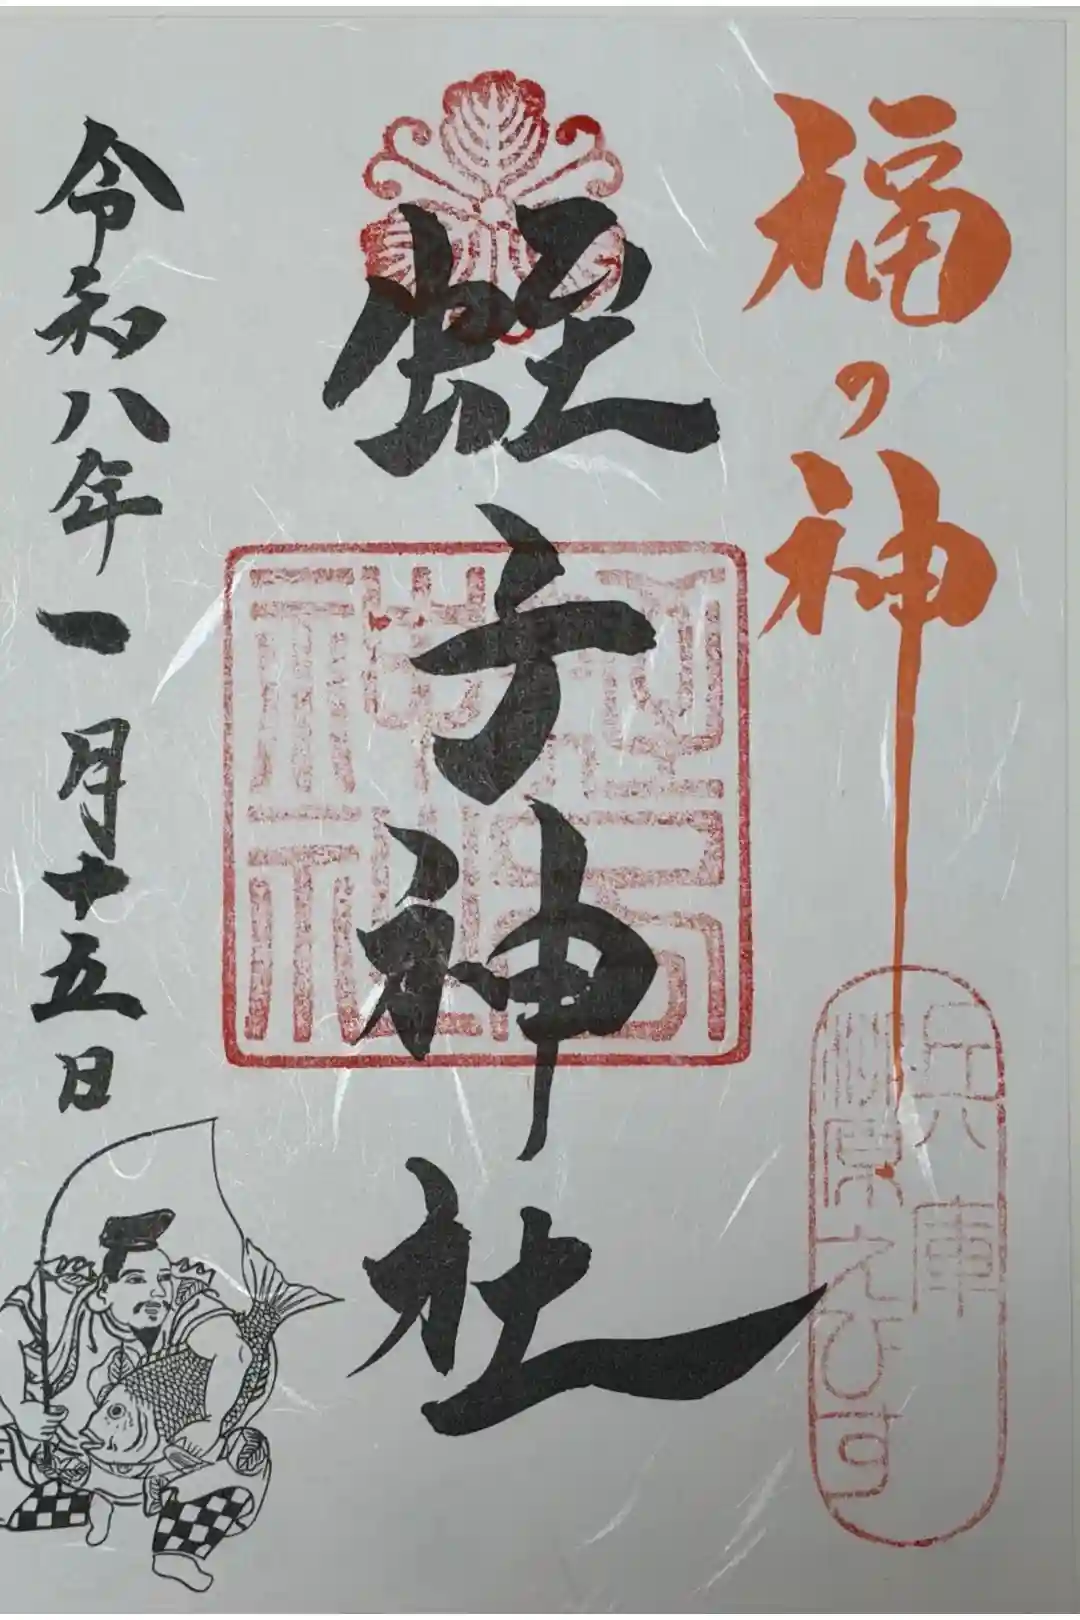 福の神
兵庫
柳原えびす
蛭子神社
令和八年一月十五日